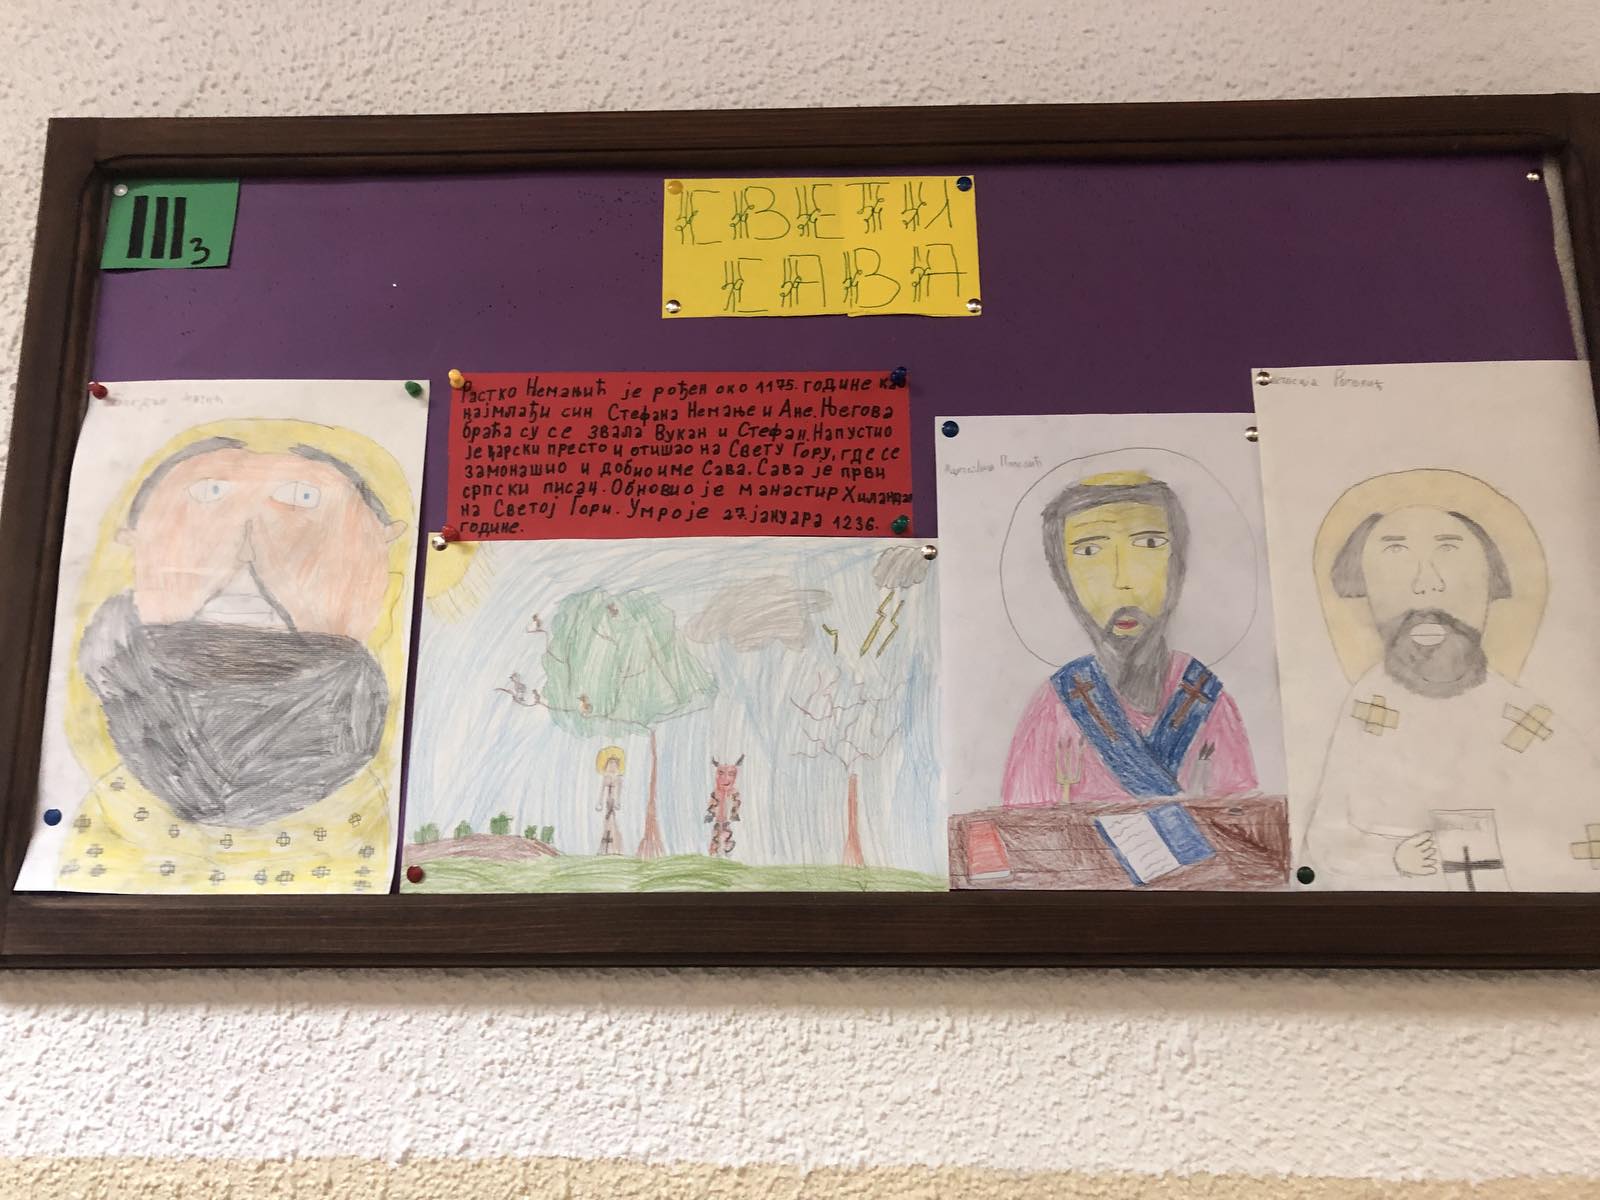 III3
СВЕТИ
САВА
Растко Немањић је рођен око 1175. године као
најмлађи син Стефана Немање и Ане. Његова
браћа су се звала Вукан и Стефан. Напустио
је царски престо и отишао на Свету Гору, где се
замонашио и добио име Сава. Сава је први
српски писац. Обновио је манастир Хиландар
на Светој Гори. Умро је 27. јануара 1236.
године.